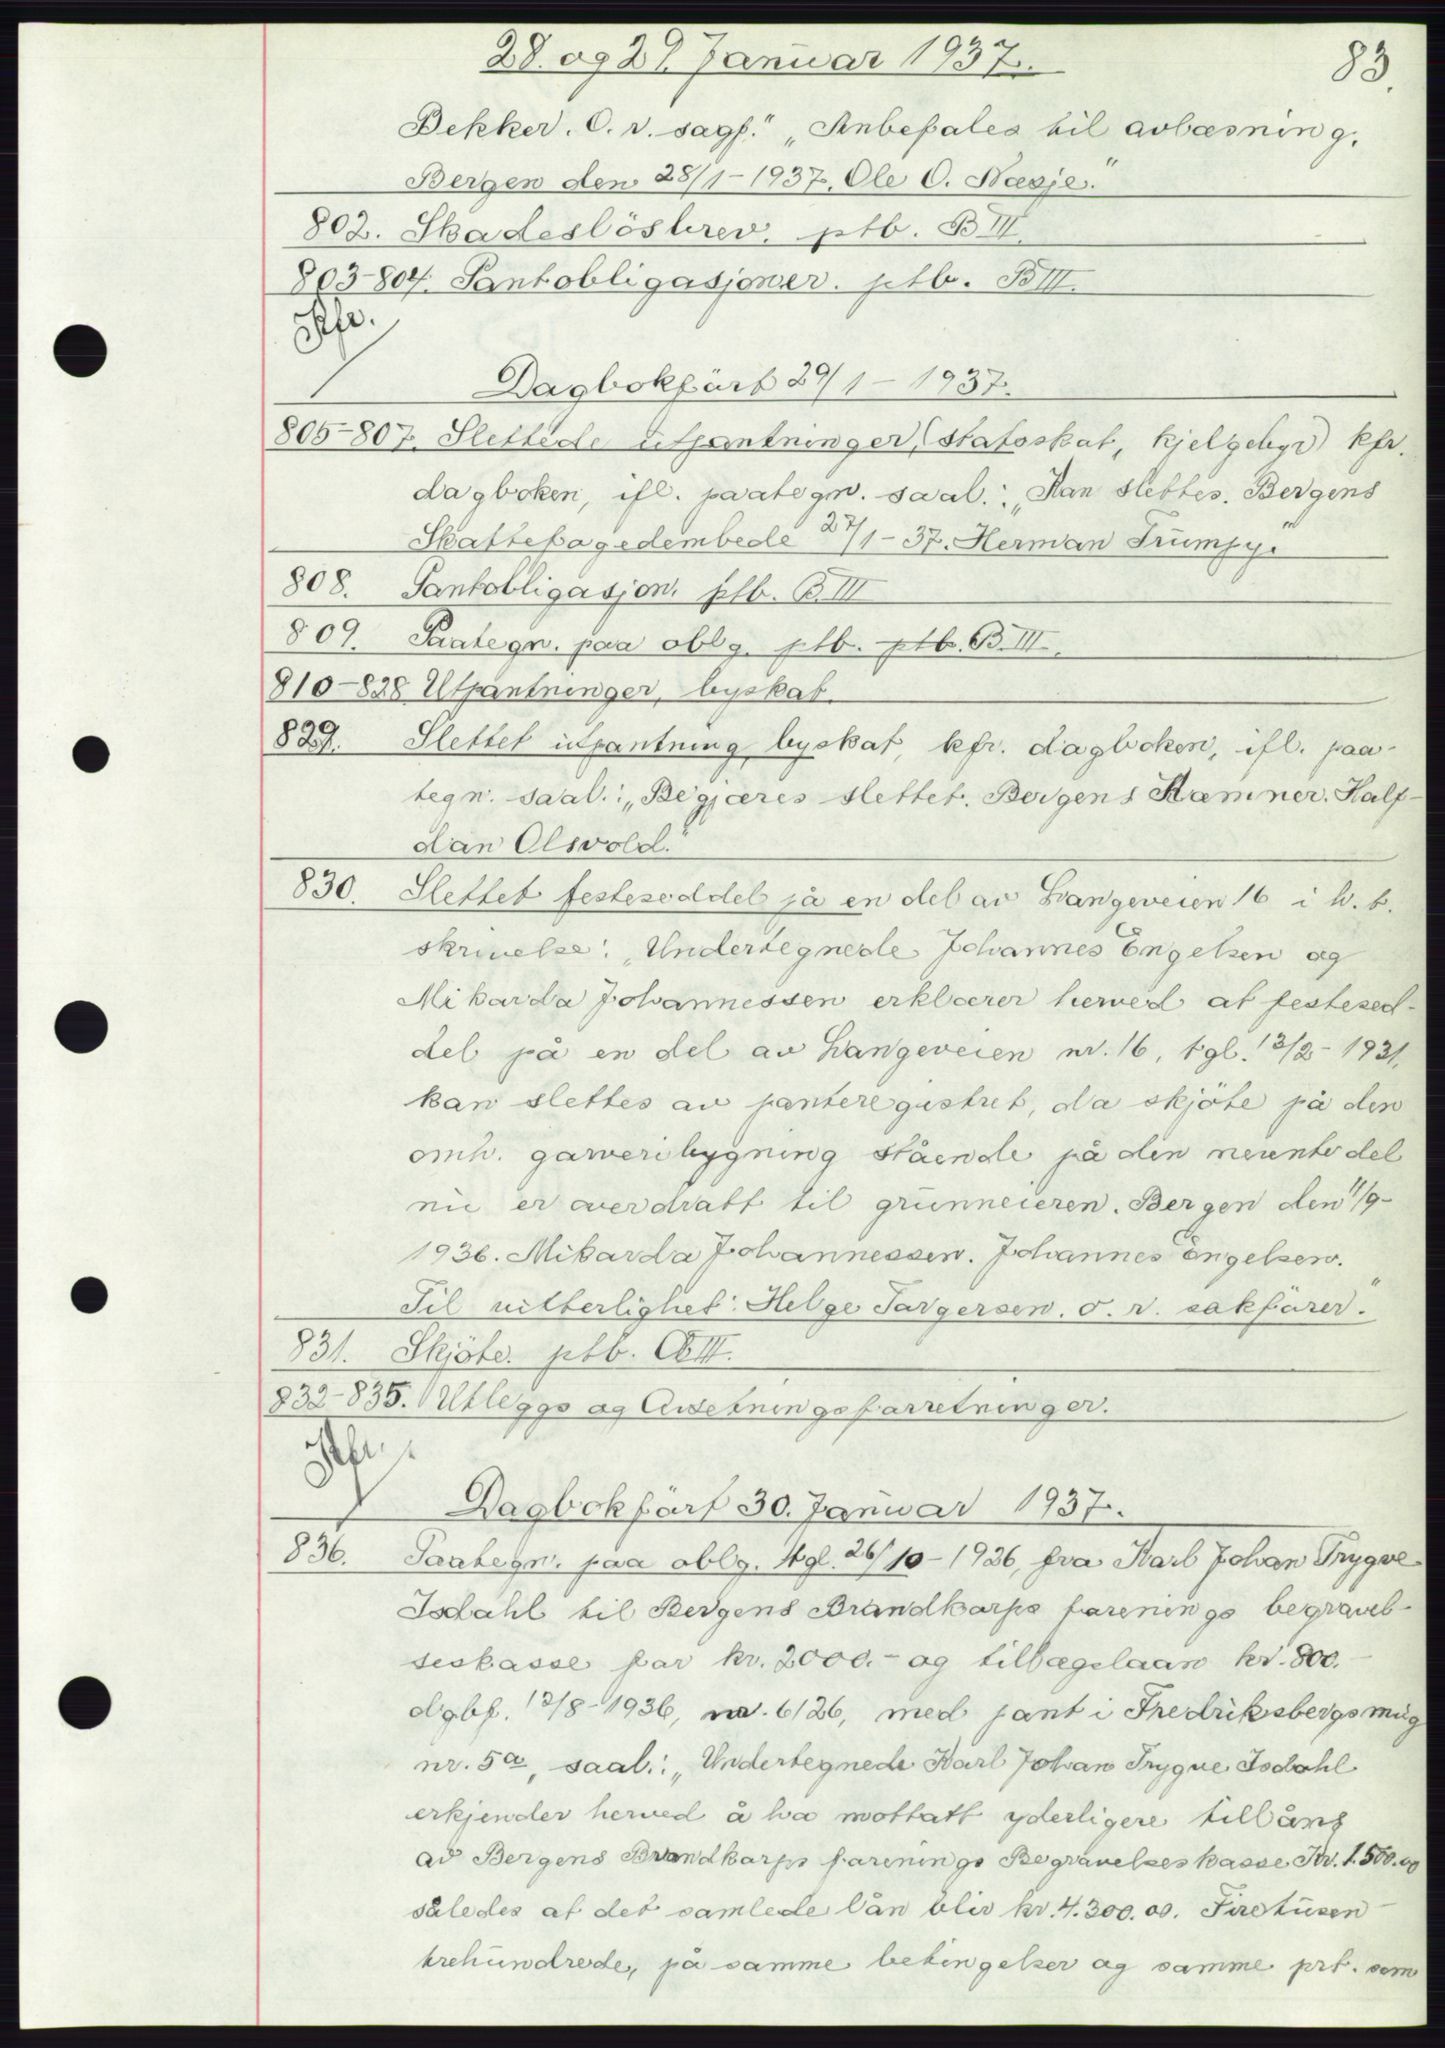 28. og 29. Januar 1937.
83.
Dekker. O. r. sagf." „Anbefales til avlæsning.
Bergen den 28/1-1937. Ole O. Næsje."
802. Skadeslösbrev. ptb. B III.
803-804. Pantobligasjoner. ptb. B III.
Kfr.
Dagbokfört 29/1-1937.
805-807. Slettede utpantninger, (statsskat, kjelgebyr) kfr.
dagboken, ifl. paategn. saal.: „Kan slettes. Bergens
Skattefogedembede 27/1-37. Herman Trümpy."
808. Pantobligasjon. ptb. B. III
809. Paategn. paa oblg. ptb. ptb. B. III.
810-828 Utpantninger, byskat.
829. Slettet utpantning byskat, kfr. dagboken, ifl. paa-
tegn. saal.: „Begjæres slettet. Bergens Kæmner. Half-
dan Olsvold."
830. Slettet festeseddel på en del av Langeveien 16 i h. t.
skrivelse: „Undertegnede Johannes Engelsen og
Mikarda Johannessen erklærer herved at festesed-
del på en del av Langeveien nr. 16, tgl. 13/2-1931.
kan slettes av panteregistret, da skjöte på den
omh. garveribygning stående på den nevnte del
nu er overdratt til grunneieren. Bergen den 11/9-
1936. Mikarda Johannessen. Johannes Engelsen.
Til vitterlighet: Helge Torgersen. o. r. sakförer."
831. Skjöte. ptb. B III.
832-835. Utleggs og Avsetningsforretninger.
Kfr.
Dagbokfört 30. Januar 1937.
836. Paategn. paa oblg. tgl. 26/10-1926, fra Karl Johan Trygve
Isdahl til Bergens Brandkorps forenings begravel-
seskasse for kr. 2000.- og tillægslaan kr. 800.-
dgbf. 13/8-1936, nr. 6126, med pant i Fredriksbergsmug
nr. 5a, saal.: „Undertegnede Karl Johan Trygve Isdahl
erkjender herved å ha mottatt yderligere tillåns
av Bergens Brandkorps forenings Begravelseskasse Kr. 1.500.00
således at det samlede lån blir kr. 4.300.00. Firetusen-
trehundrede, på samme betingelser og samme prt. som